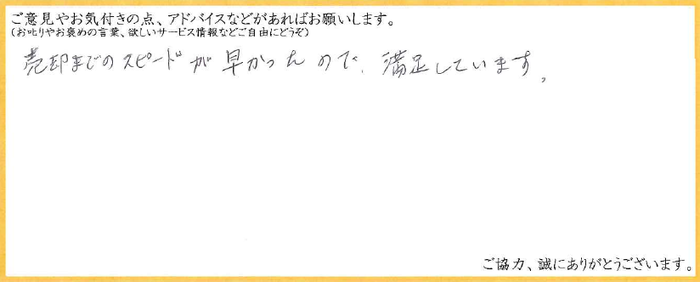 ご意見やお気付きの点、アドバイスなどがあればお願いします。
(お叱りやお褒めの言葉、欲しいサービス情報などご自由にどうぞ)
売却までのスピードが早かったので、満足しています。
ご協力、誠にありがとうございます。